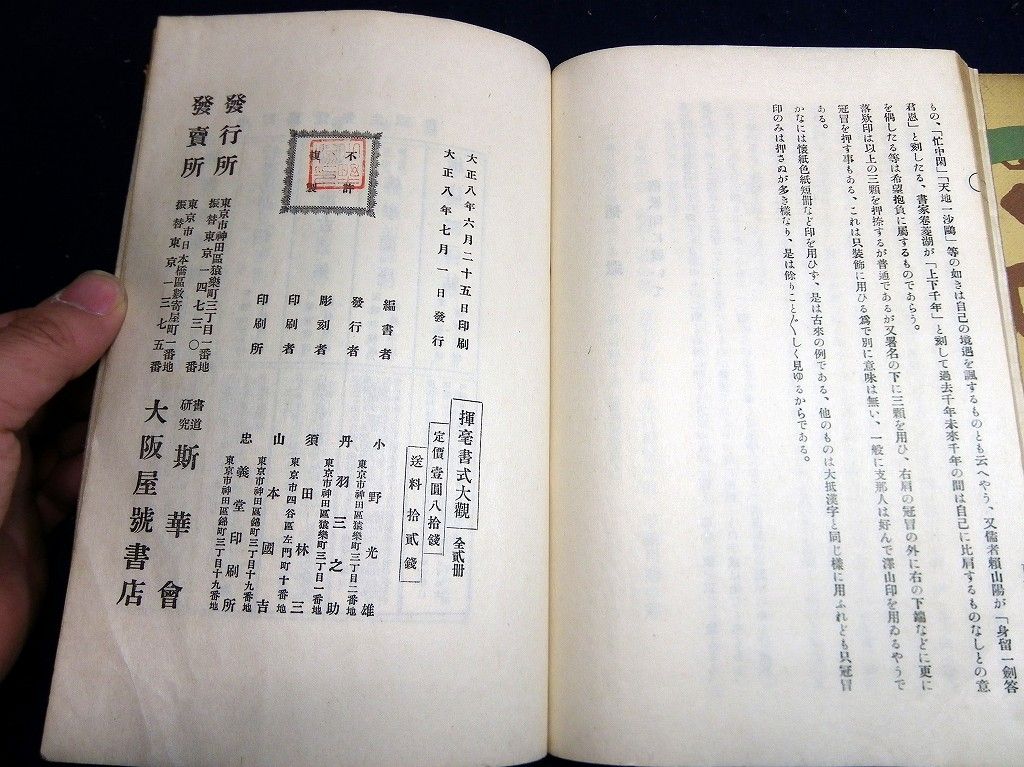 もの、「忙中閑」「天地一沙鷗」等の如きは自己の境遇を諷するものとも云へやう、又儒者頼山陽が「身留一劍答
君恩」と刻したる、書家卷菱湖が「上下千年」と刻して過去千年未來千年の間は自己に比肩するものなしとの意
を偶したる等は希望抱負に屬するものであらう。
落欵印は以上の三顆を押捺するが普通であるが又署名の下に三顆を用ひ、右肩の冠冒の外に右の下端などに更に
冠冒を押す事もある、これは只裝飾に用ひる爲で別に意味は無い、一般に支那人は好んで澤山印を用ゐるやうで
ある。
かなには懷紙色紙短册など印を用ひす、是は古來の例である、他のものは大抵漢字と同じ樣に用ふれども只冠冒
印のみは押さぬが多き樣なり、是は餘りこと〴〵しく見ゆるからである。
揮毫書式大觀 全貳册
定價壹圓八拾錢
送料拾貳錢
大正八年六月二十五日印刷
大正八年七月一日發行
不許
複製
編書者 小野光雄
東京市神田區猿樂町三丁目二番地
發行者 丹羽三之助
東京市神田區猿樂町三丁目一番地
彫刻者 須田林三
東京市四谷區左門町十番地
印刷者 山本國吉
東京市神田區錦町三丁目十九番地
印刷所 忠義堂印刷所
東京市神田區錦町三丁目十九番地
發行所 東京市神田區猿樂町三丁目一番地
振替東京一四七三〇番
書道研究 斯華會
發賣所 東京市日本橋區數寄屋町一番地
振替東京一三七五番
大阪屋號書店